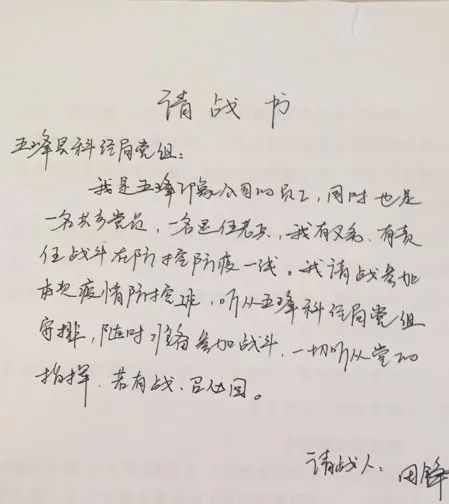 请战书
五峰县科经局党组：
我是五峰印象公司的员工，同时也是
一名共产党员，一名退伍老兵，我有义务、有责
任战斗在防控防疫一线。我请战参加
本次疫情防控战，听从五峰科经局党组
安排，随时准备参加战斗，一切听从党的
指挥。若有战、召必回。
请战人：田锋